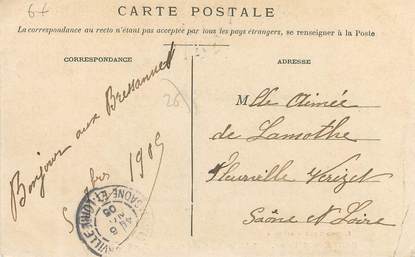 6+
CARTE POSTALE
La correspondance au recto n'étant pas acceptée par tous les pays étrangers, se renseigner à la Poste
CORRESPONDANCE
ADRESSE
26
Bonjour aux Bressannes
5 1905
Mlle Aimée
de Lamothe
Fleurville Verizet
Saône et Loire
SAONE-ET-LOIRE
05